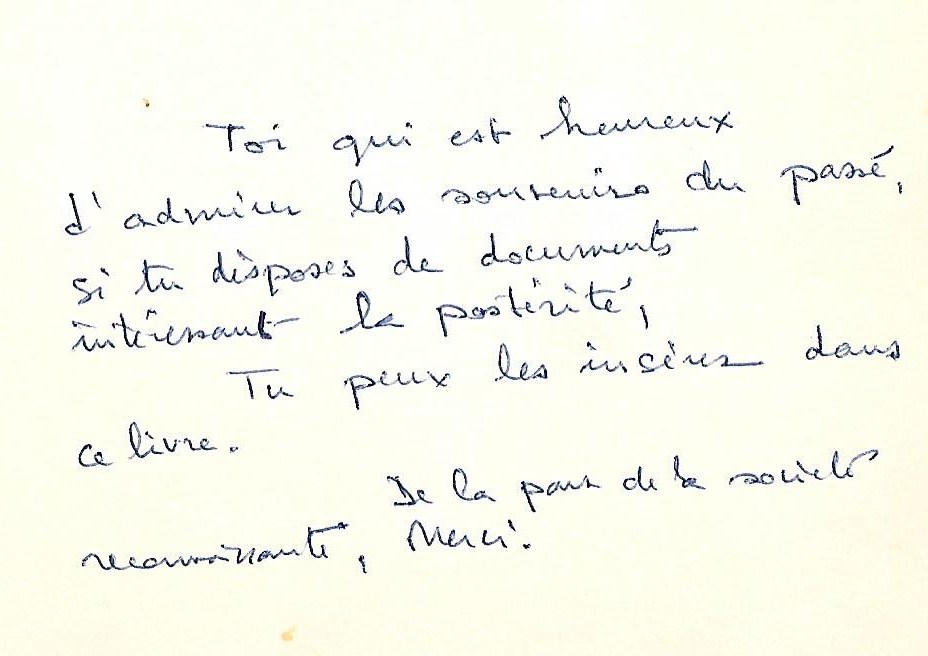 Toi qui est heureux
d'admirer les souvenirs du passé,
si tu disposes de documents
intéressant la postérité,
Tu peux les insérer dans
ce livre.
De la part de la société
reconnaissante, Merci.